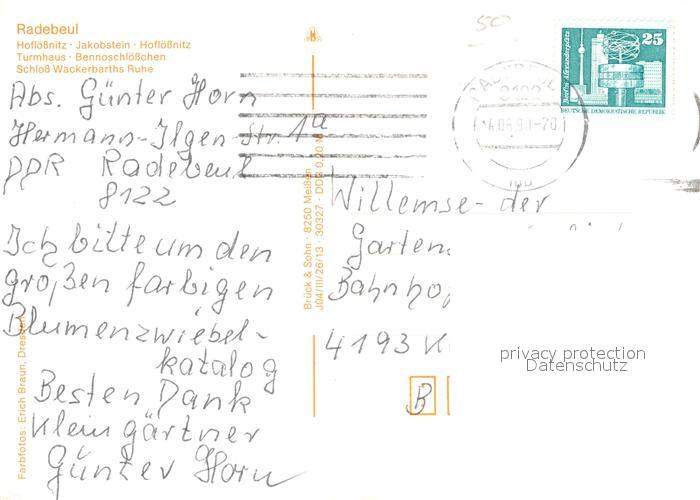 Radebeul
Hoflößnitz · Jakobstein · Hoflößnitz
Turmhaus · Bennoschlößchen
Schloß Wackerbarths Ruhe
Abs. Günter Horn
Hermann-Ilgen-Str. 1a
DDR Radebeul
8122
Ich bitte um den
großen farbigen
Blumenzwiebel-
katalog
Besten Dank
Kleingärtner
Günter Horn
Farbfotos: Erich Braun, Dresden
Brück & Sohn · 8250 Meißen
J04/III/26/13 · 30327 · DDR 0,20 M
50
Berlin, Alexanderplatz
25
DEUTSCHE DEMOKRATISCHE REPUBLIK
8122
14.05.90-20
Willemse-der
Garten
Bahnhof
4193 K
B
privacy protection
Datenschutz